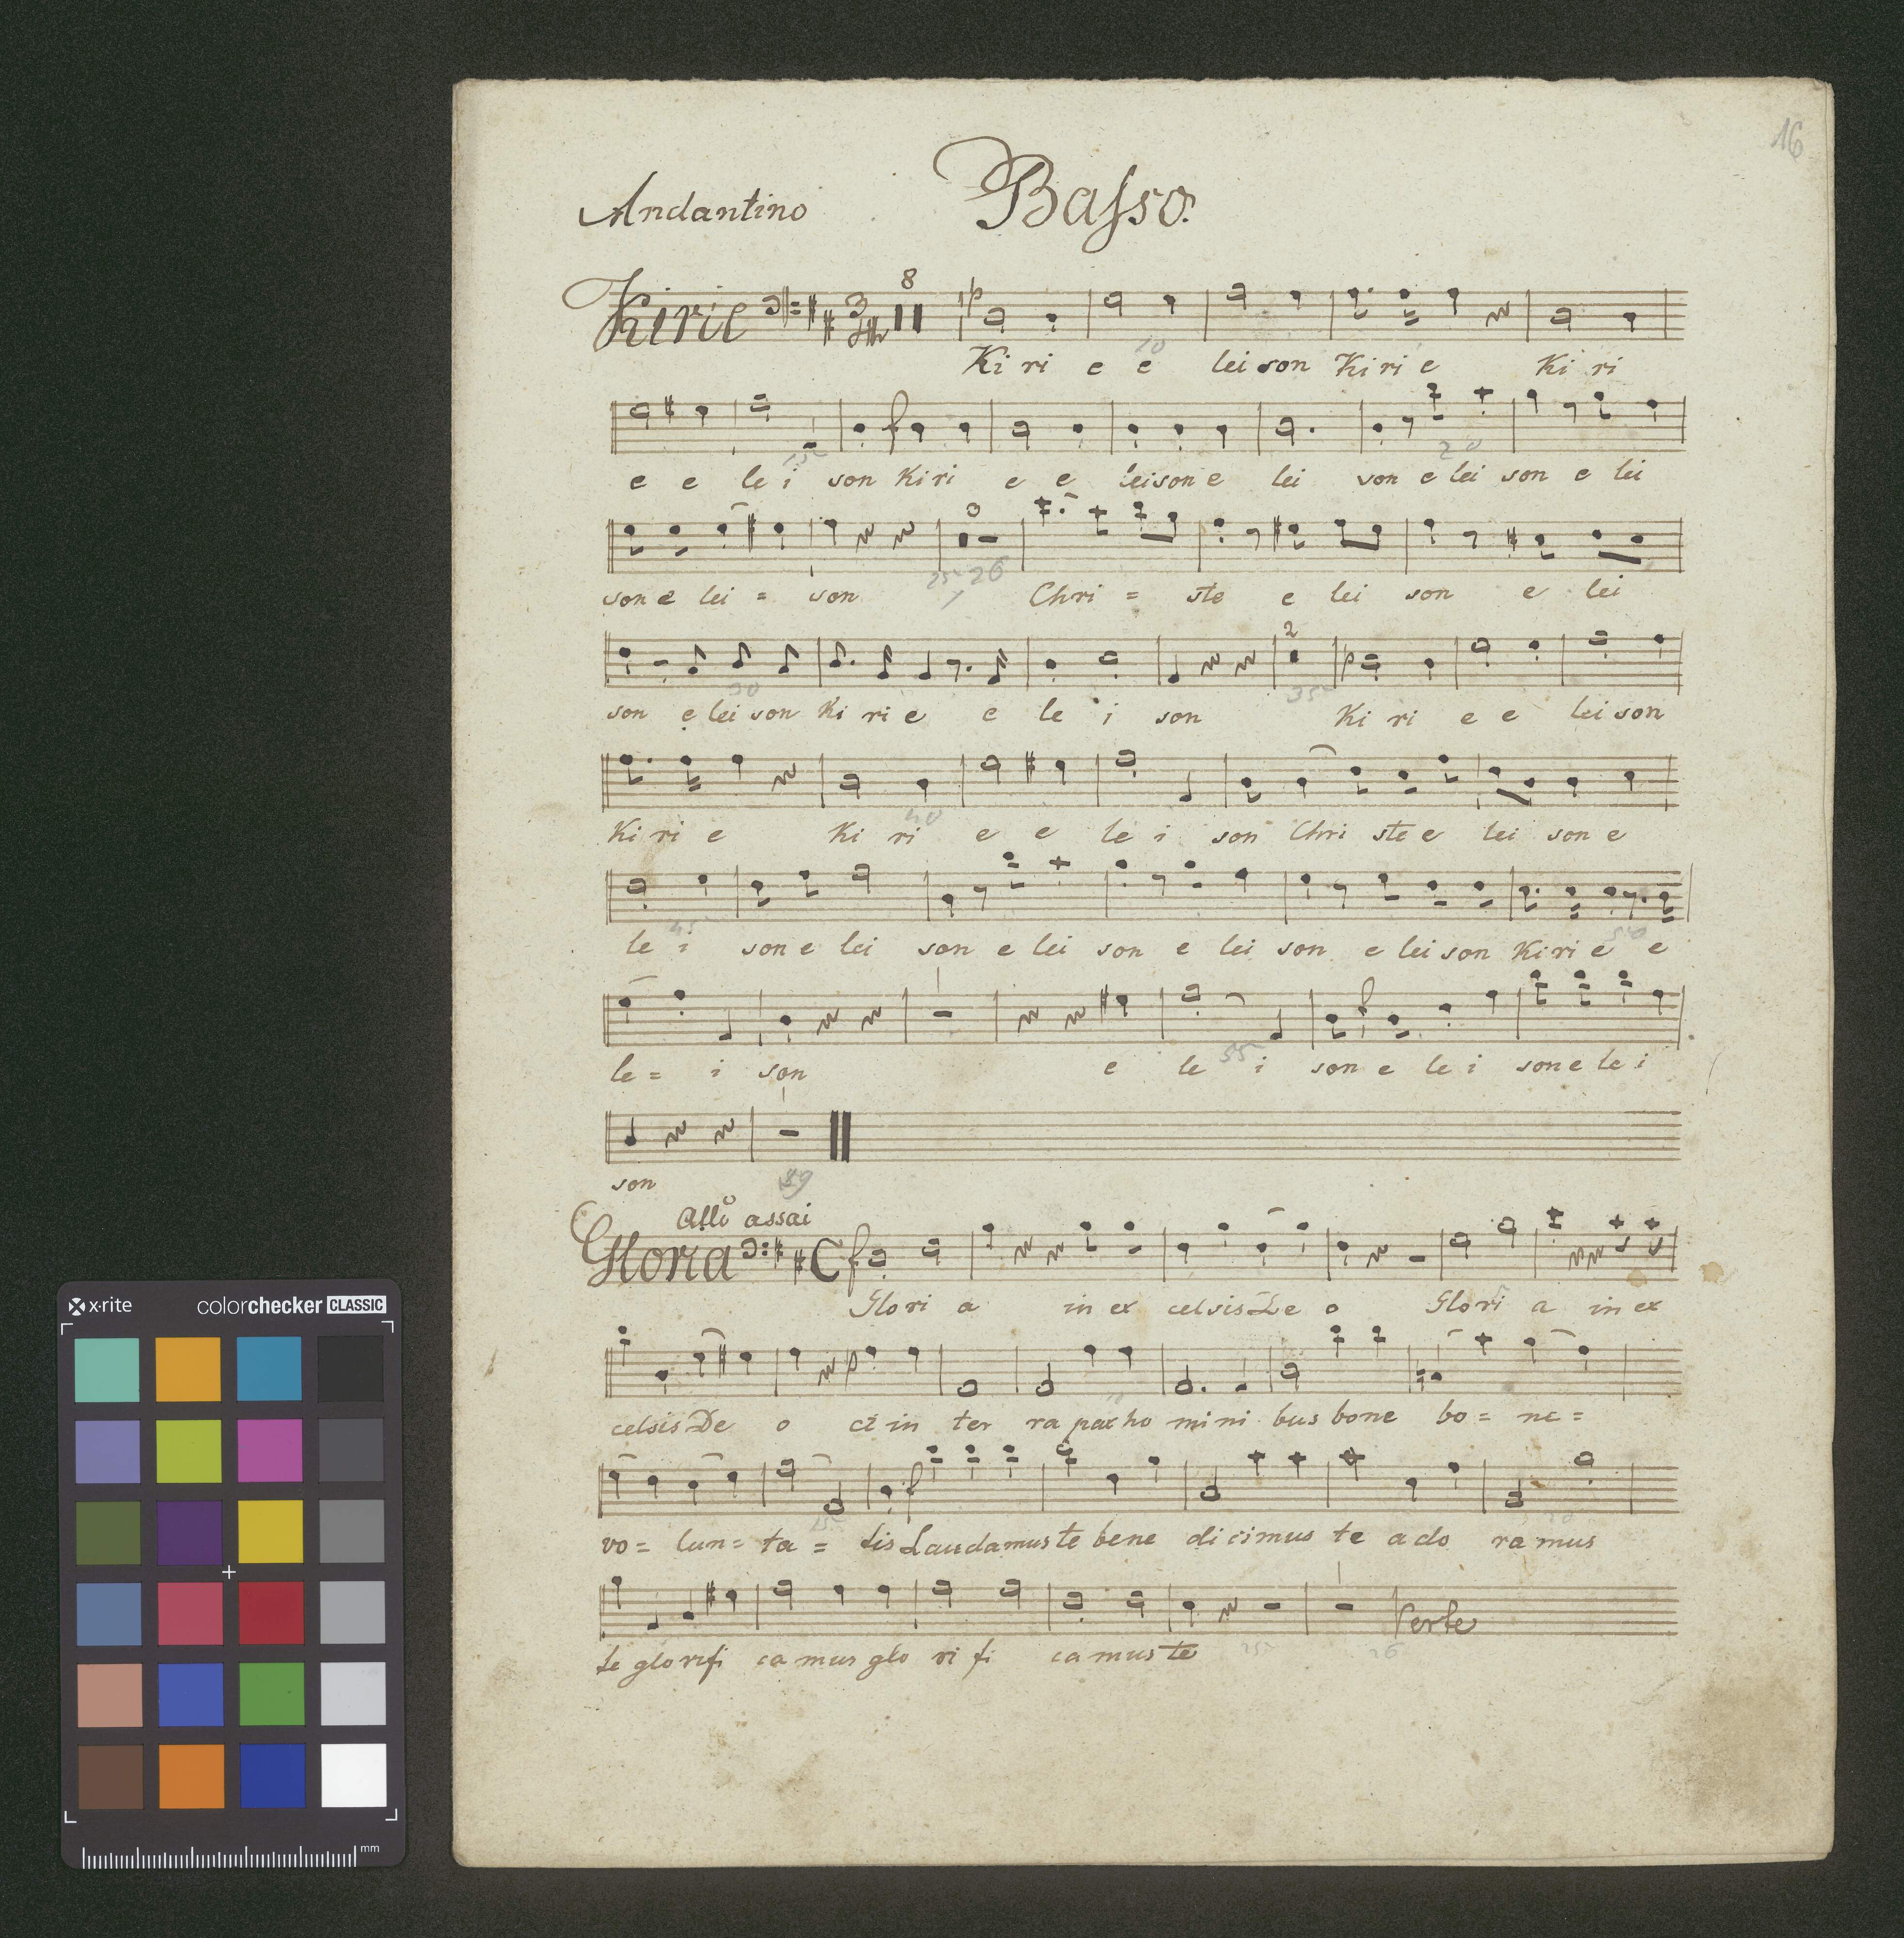 16
Andantino Basso.
8
Kirie 3/4 p
Ki ri e e lei son Ki ri e Ki ri
10
e e le i son Ki ri e e leison e lei son e lei son e lei
15 20
son e lei = son Chri = ste e lei son e lei
25 26
2
son e lei son Ki ri e e le i son Ki ri e e lei son
30 35
Ki ri e Ki ri e e le i son Chri ste e lei son e
40
le i son e lei son e lei son e lei son e lei son Ki ri e e
45 50
le = i son e le i son e le i son e le i
55
son
59
All° assai
Gloria C f
Glori a in ex celsis De o Glori a in ex
celsis De o et in ter ra pax ho mini bus bone bo = ne =
vo = lun = ta = tis Laudamus te bene dicimus te ado ramus
15 20
te glorifi camus glo ri fi camus te
Verte
25 26
x-rite colorchecker CLASSIC
mm